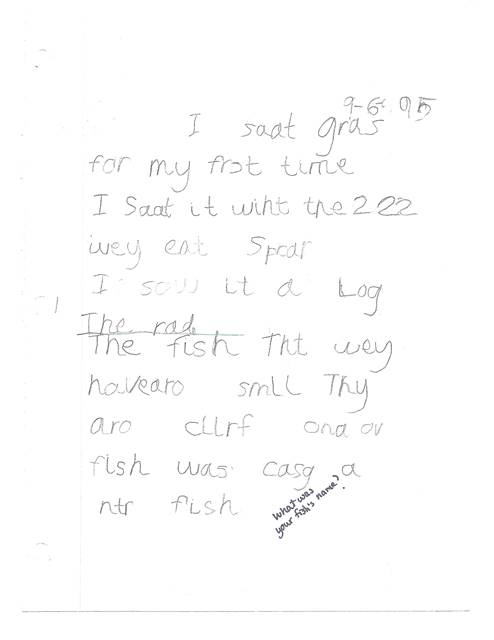 9-6-95
I saat gras
for my frst time
I Saat it wiht the 222
wey eat Sprar
I sow it a Log
The rad
The fish Tht wey
havearo smll Thy
aro cllrf ona ov
fish was casg a
ntr fish
What was
your fish's name?